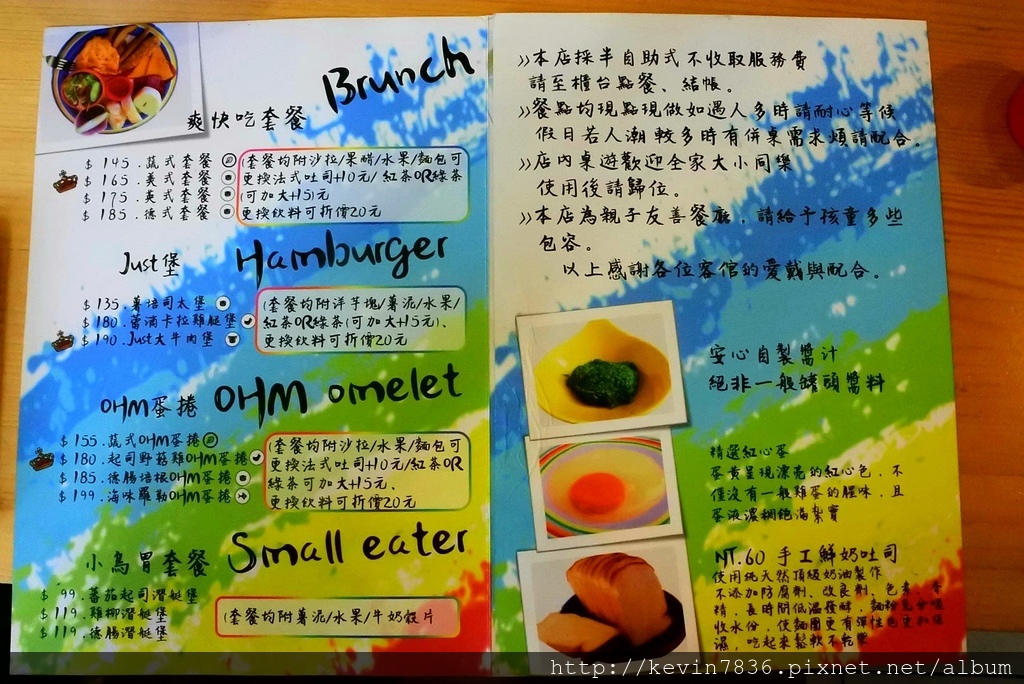 Brunch
爽快吃套餐
$145.蔬式套餐
$165.美式套餐
$175.英式套餐
$185.德式套餐
(套餐均附沙拉/果醋/水果/麵包可
更換法式吐司+10元/紅茶OR綠茶
(可加大+15)元
更換飲料可折價20元
Just堡 Hamburger
$135.薯培司太堡
$180.蕾滴卡拉雞腿堡
$190.Just大牛肉堡
(套餐均附洋芋塊/薯泥/水果/
紅茶OR綠茶(可加大+15元)、
更換飲料可折價20元
OHM蛋捲 OHM omelet
$155.蔬式OHM蛋捲
$180.起司野菇雞OHM蛋捲
$185.德腸培根OHM蛋捲
$199.海味羅勒OHM蛋捲
(套餐均附沙拉/水果/麵包可
更換法式吐司+10元/紅茶OR
綠茶可加大+15元、
更換飲料可折價20元
小鳥胃套餐 Small eater
$99.蕃茄起司潛艇堡
$119.雞柳潛艇堡
$119.德腸潛艇堡
(套餐均附薯泥/水果/牛奶穀片
»本店採半自助式不收取服務費
請至櫃台點餐、結帳。
»餐點均現點現做如遇人多時請耐心等候
假日若人潮較多時有併桌需求煩請配合。
»店內桌遊歡迎全家大小同樂
使用後請歸位。
»本店為親子友善餐廳,請給予孩童多些
包容。
以上感謝各位客倌的愛戴與配合。
安心自製醬汁
絕非一般罐頭醬料
精選紅心蛋
蛋黃呈現漂亮的紅心色,不
僅沒有一般雞蛋的腥味,且
蛋液濃稠飽滿紮實
NT.60 手工鮮奶吐司
使用純天然頂級奶油製作
不添加防腐劑、改良劑、色素、香
精,長時間低溫發酵,麵粉充分吸
收水份,使麵團更有彈性也更加保
濕,吃起來鬆軟不乾澀
http://kevin7836.pixnet.net/album